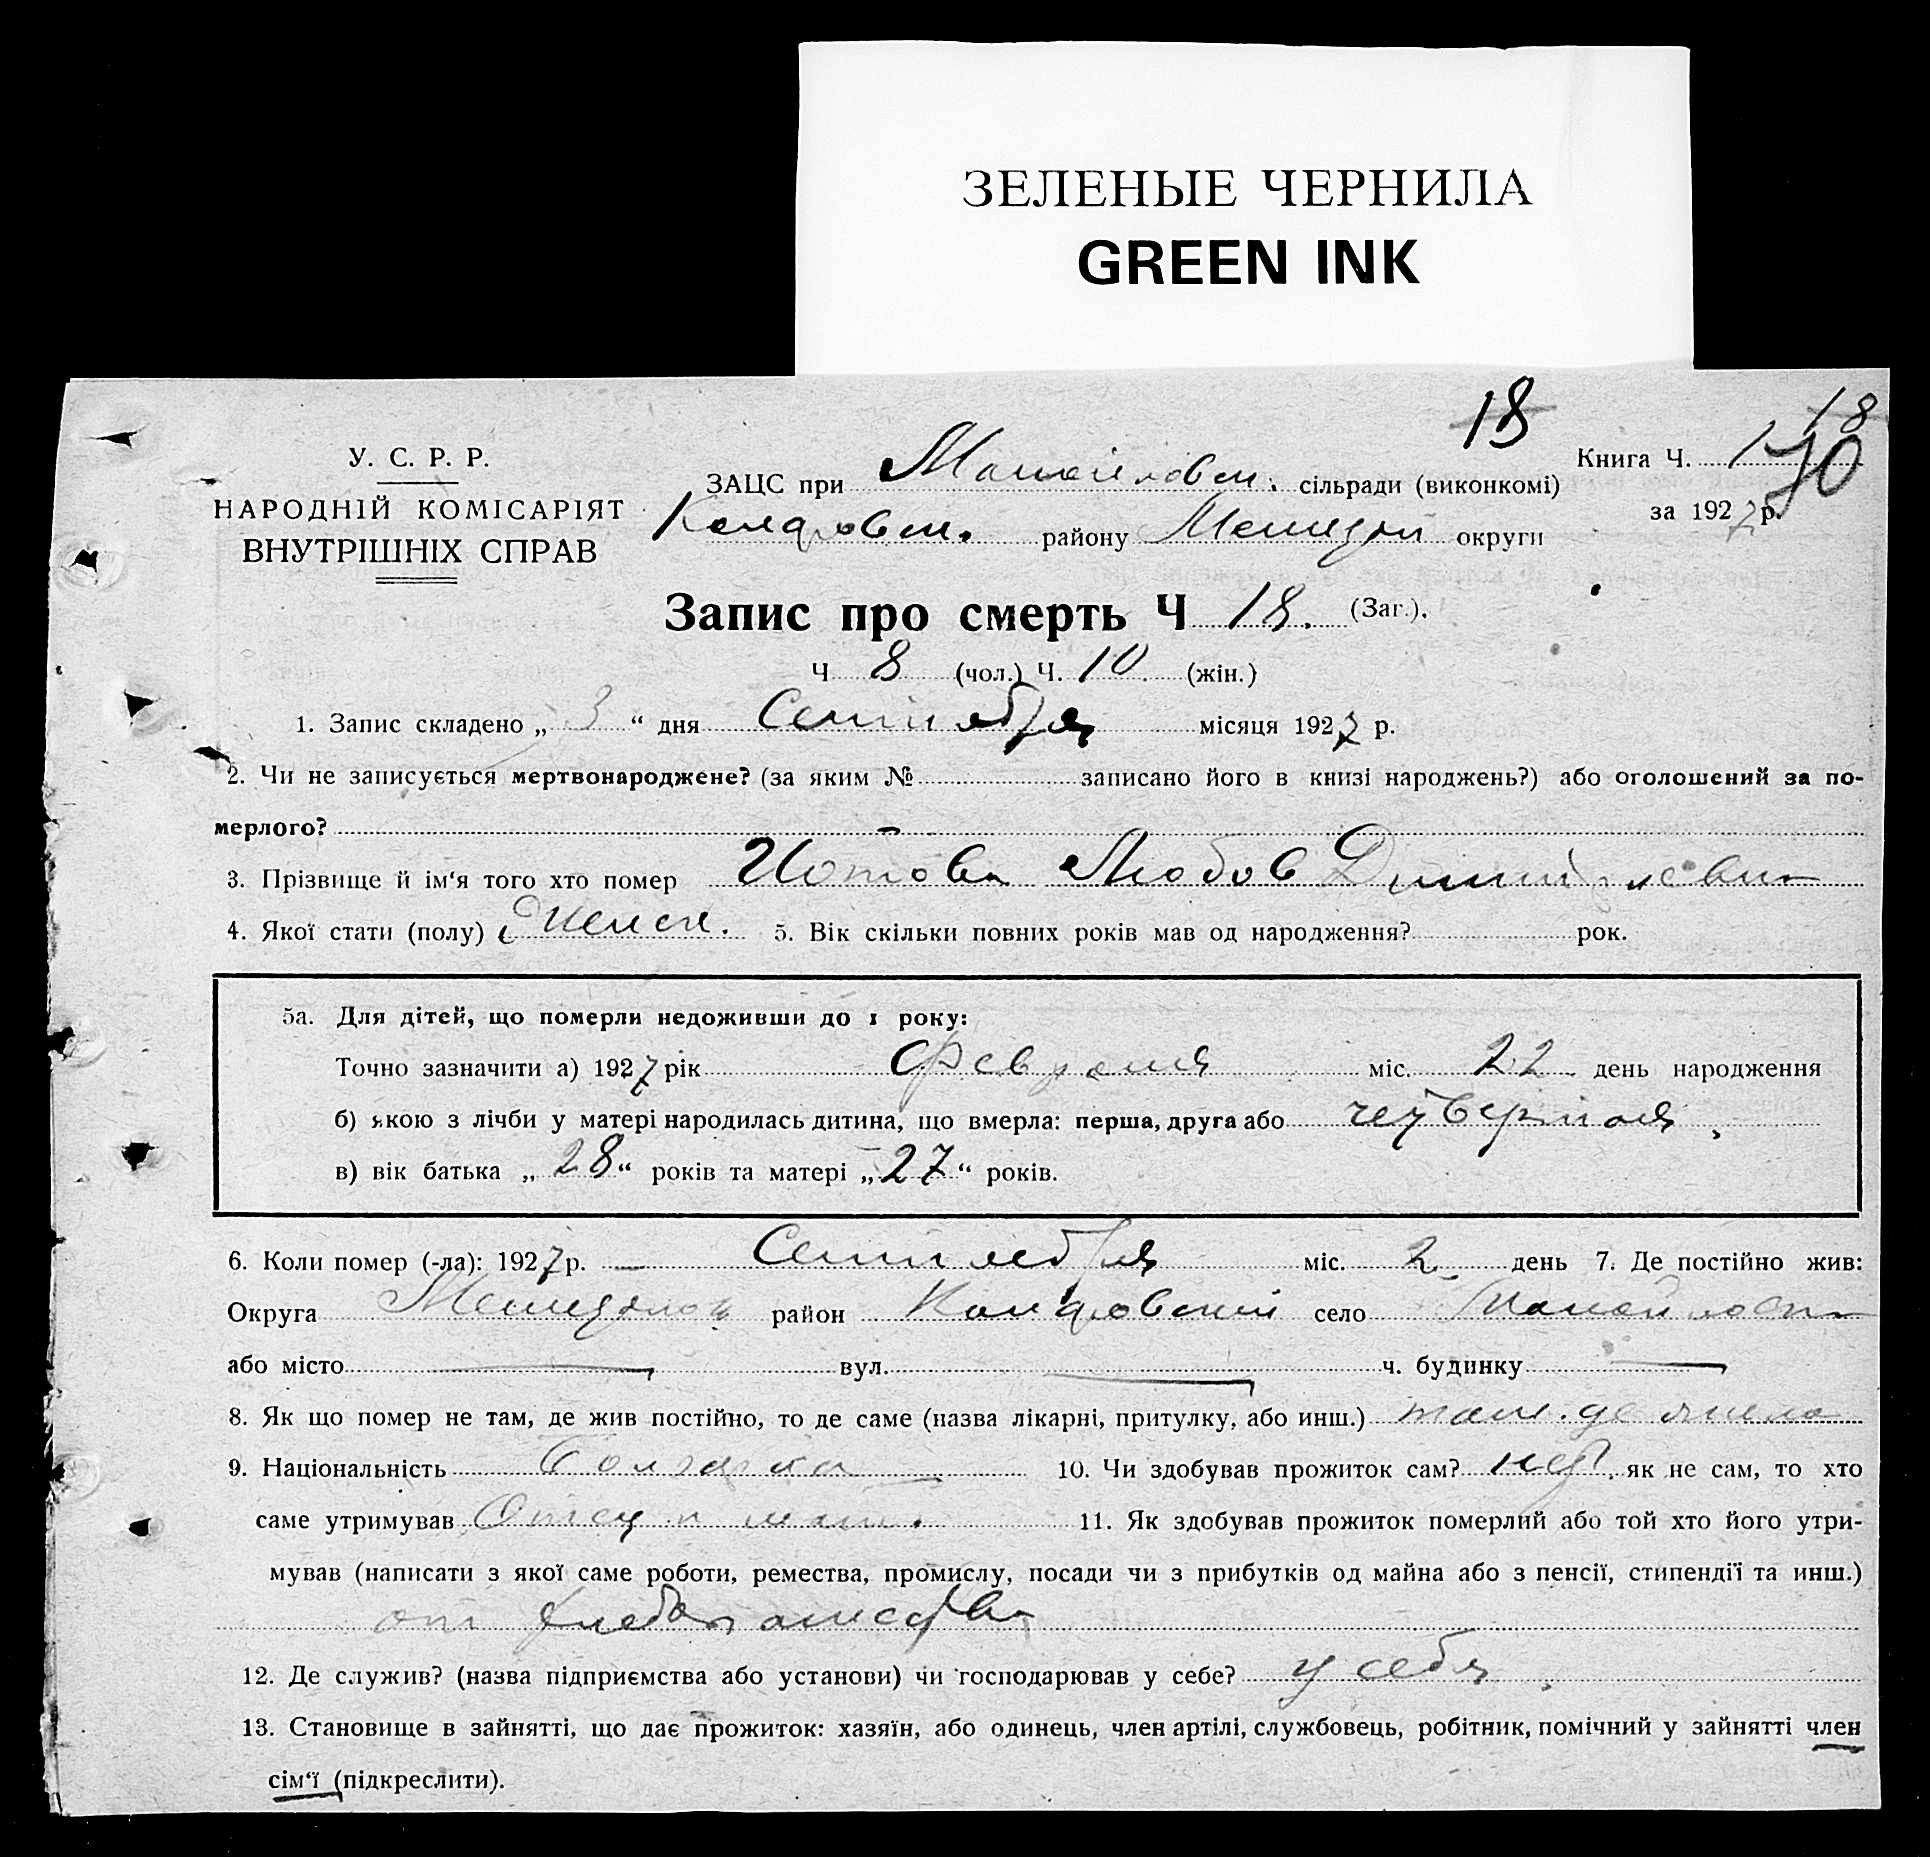 ЗЕЛЕНЫЕ ЧЕРНИЛА
GREEN INK
18
18
У. С. Р. Р.
НАРОДНІЙ КОМІСАРІЯТ
ВНУТРІШНІХ СПРАВ
Книга Ч. 1
70
ЗАЦС при сільради (виконкомі)
за 1927 р.
району округи
Запис про смерть Ч 18. (Заг.).
Ч 8 (чол.) Ч. 10 (жін.)
1. Запис складено „ 3 “ дня Сентября місяця 1927 р.
2. Чи не записується мертвонароджене? (за яким № записано його в книзі народжень?) або оголошений за по-
мерлого?
3. Прізвище й ім‘я того хто помер Иотова Любов
4. Якої стати (полу) Женск. 5. Вік скільки повних років мав од народження? рок.
5а. Для дітей, що померли недоживши до 1 року:
Точно зазначити а) 1927 рік Февраля міс. 22 день народження
б) якою з лічби у матері народилась дитина, що вмерла: перша, друга або четвертая
в) вік батька „ 28 “ років та матері „ 27 “ років.
6. Коли помер (-ла): 1927 р. Сентября міс. 2 день 7. Де постійно жив:
Округа район село
або місто вул. ч. будинку
8. Як що помер не там, де жив постійно, то де саме (назва лікарні, притулку, або инш.) там. де жила
9. Національність Болгарка 10. Чи здобував прожиток сам? нет як не сам, то хто
саме утримував Отец и мать. 11. Як здобував прожиток померлий або той хто його утри-
мував (написати з якої саме роботи, ремества, промислу, посади чи з прибутків од майна або з пенсії, стипендії та инш.)
от хлебопашества
12. Де служив? (назва підприємства або установи) чи господарював у себе? у себя
13. Становище в зайнятті, що дає прожиток: хазяїн, або одинець, член артілі, службовець, робітник, помічний у зайнятті член
сім‘ї (підкреслити).